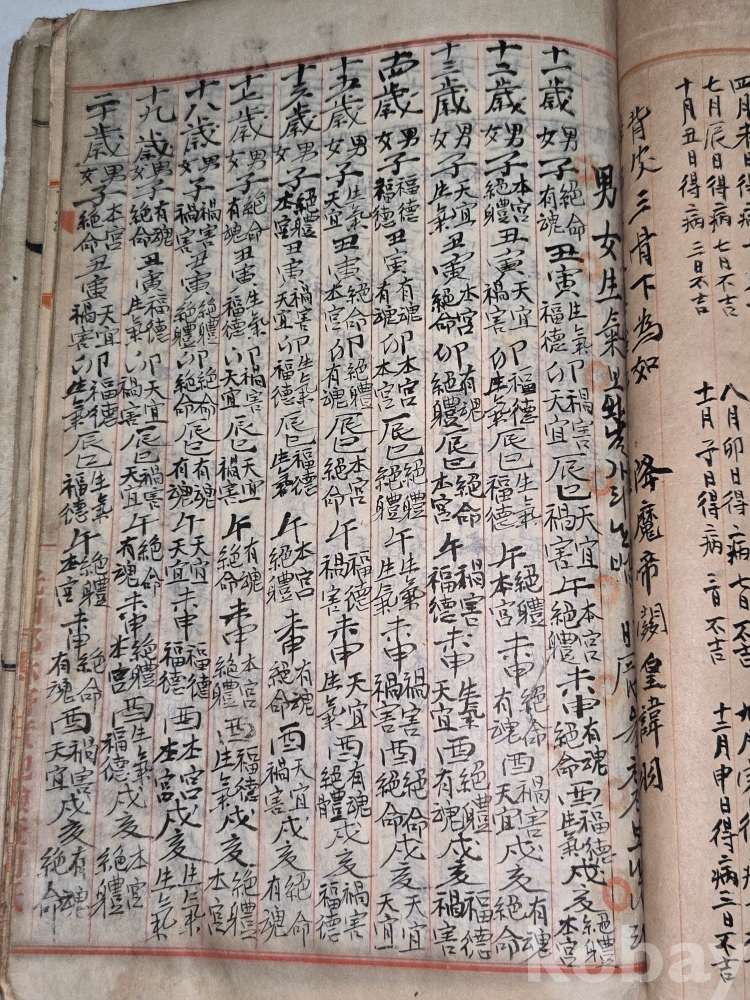 七月辰日得病 七日不吉 八月卯日得病
十月丑日得病 二日不吉 十一月子日得病 二日不吉 十二月申日得病 三日不吉
三 下為如 降魔帝 皇諱
男女生氣
十一歲 男女 子 絕命 有魂 丑寅 生氣 福德 卯 禍害 天宜 辰巳 天宜 禍害 午 本宮 絕體 未申 有魂 絕命 酉 福德 生氣 戌亥 絕體 本宮
十二歲 男女 子 本宮 絕體 丑寅 天宜 禍害 卯 福德 生氣 辰巳 生氣 福德 午 絕體 本宮 未申 絕命 有魂 酉 禍害 天宜 戌亥 有魂 絕命
十三歲 男女 子 天宜 生氣 丑寅 本宮 絕命 卯 有魂 絕體 辰巳 絕命 本宮 午 禍害 福德 未申 生氣 天宜 酉 絕體 有魂 戌亥 福德 禍害
十四歲 男女 子 福德 福德 丑寅 有魂 有魂 卯 本宮 本宮 辰巳 絕體 絕體 午 生氣 生氣 未申 禍害 禍害 酉 絕命 絕命 戌亥 天宜 天宜
十五歲 男女 子 生氣 天宜 丑寅 絕命 本宮 卯 絕體 有魂 辰巳 本宮 絕命 午 福德 禍害 未申 天宜 生氣 酉 有魂 絕體 戌亥 禍害 福德
十六歲 男女 子 絕體 本宮 丑寅 禍害 天宜 卯 生氣 福德 辰巳 福德 生氣 午 本宮 絕體 未申 有魂 絕命 酉 天宜 禍害 戌亥 絕命 有魂
十七歲 男女 子 絕命 有魂 丑寅 生氣 福德 卯 禍害 天宜 辰巳 天宜 禍害 午 有魂 絕命 未申 本宮 絕體 酉 福德 生氣 戌亥 絕體 本宮
十八歲 男女 子 禍害 禍害 丑寅 絕體 絕體 卯 絕命 絕命 辰巳 有魂 有魂 午 天宜 天宜 未申 福德 福德 酉 本宮 本宮 戌亥 生氣 生氣
十九歲 男女 子 有魂 絕命 丑寅 福德 生氣 卯 天宜 禍害 辰巳 禍害 天宜 午 絕命 有魂 未申 絕體 本宮 酉 生氣 福德 戌亥 本宮 絕體
二十歲 男女 子 本宮 絕命 丑寅 天宜 禍害 卯 福德 生氣 辰巳 生氣 福德 午 絕體 本宮 未申 絕命 有魂 酉 禍害 天宜 戌亥 有魂 絕命
kobay